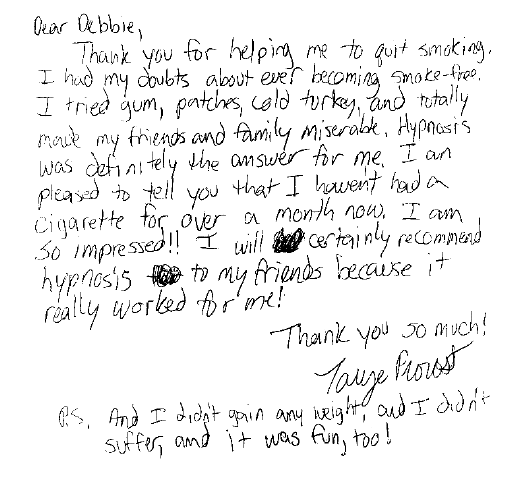 Dear Debbie,
Thank you for helping me to quit smoking.
I had my doubts about ever becoming smoke-free.
I tried gum, patches, cold turkey, and totally
made my friends and family miserable. Hypnosis
was definitely the answer for me. I am
pleased to tell you that I haven't had a
cigarette for over a month now. I am
so impressed!! I will certainly recommend
hypnosis to my friends because it
really worked for me!
Thank you so much!
P.S. And I didn't gain any weight, and I didn't
suffer, and it was fun, too!